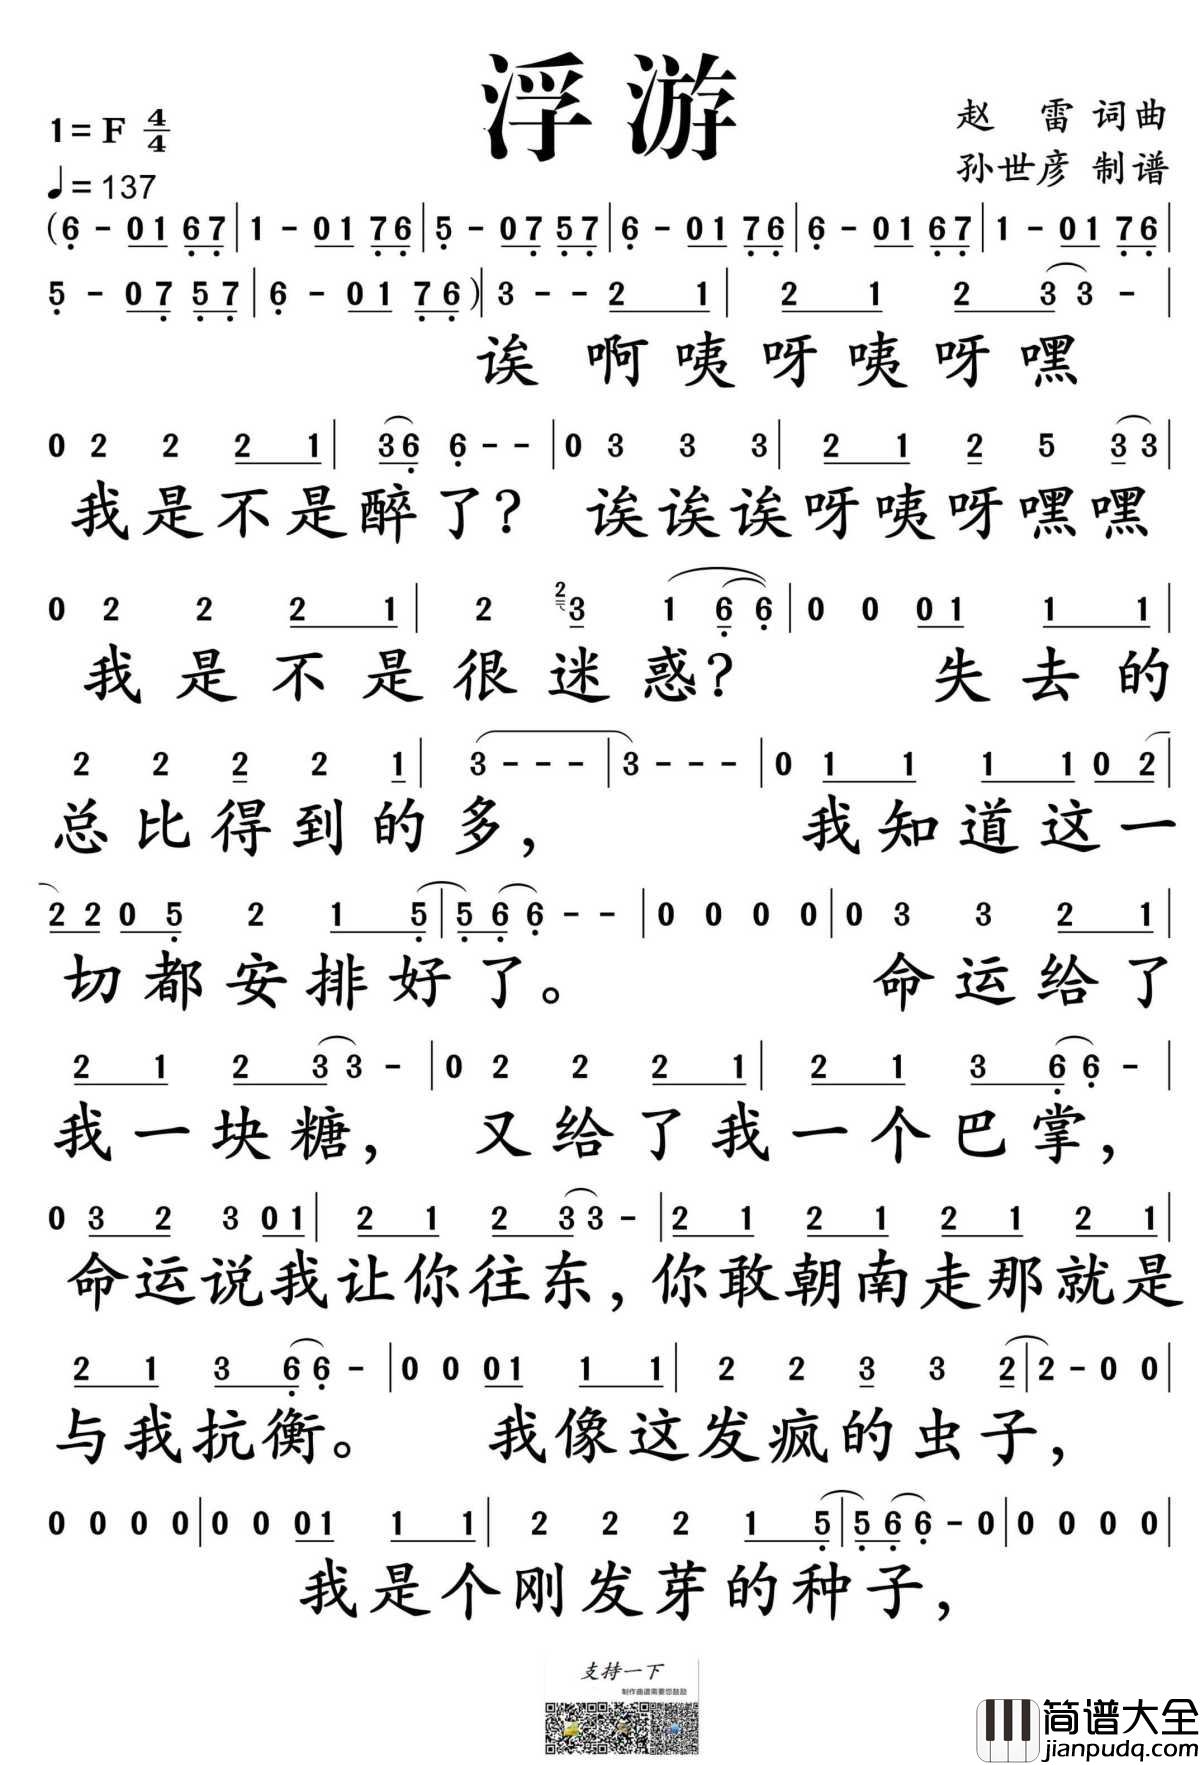 浮游
1=F 4/4
赵 雷 词曲
♩=137
孙世彦 制谱
(6 - 01 67|1 - 01 76|5 - 07 57|6 - 01 76|6 - 01 67|1 - 01 76|
5 - 07 57|6 - 01 76)|3 - - 2 1|2 1 2 3 3 -|
诶 啊 咦 呀 咦 呀 嘿
0 2 2 2 1|36 6 - -|0 3 3 3|2 1 2 5 3 3|
我是不是醉了? 诶诶诶呀咦呀嘿嘿
0 2 2 2 1|2 2 3 1 6 6|0 0 01 1 1|
我是不是很迷惑? 失去的
2 2 2 2 1|3 - - -|3 - - -|0 1 1 1 1 0 2|
总比得到的多, 我知道这一
2 2 0 5 2 1 5|5 6 6 - -|0 0 0 0|0 3 3 2 1|
切都安排好了。 命运给了
2 1 2 3 3 -|0 2 2 2 1|2 1 3 6 6 -|
我一块糖, 又给了我一个巴掌,
0 3 2 3 01|2 1 2 3 3 -|2 1 2 1 2 1 2 1|
命运说我让你往东,你敢朝南走那就是
2 1 3 6 6 -|0 0 01 1 1|2 2 3 3 2|2 - 0 0|
与我抗衡。 我像这发疯的虫子,
0 0 0 0|0 0 01 1 1|2 2 2 1 5|5 6 6 - 0|0 0 0 0|
我是个刚发芽的种子,
支持一下
制作曲谱需要您鼓励
简谱大全
jianpudq.com